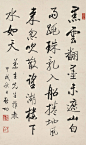 黑雲翻墨未遮山白
雨跳珠亂入船捲地風
來忽吹散望湖樓下
水如天